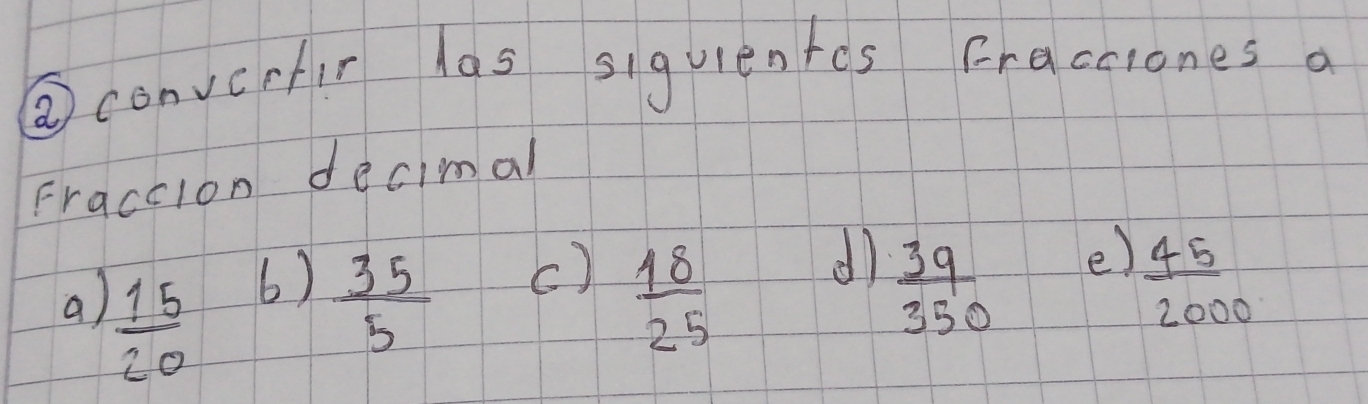 ② convertir las siguientes Fracciones a
Fraccion decimal
a) 15/20 b) 35/5 c) 18/25 d) 39/350 e) 45/2000